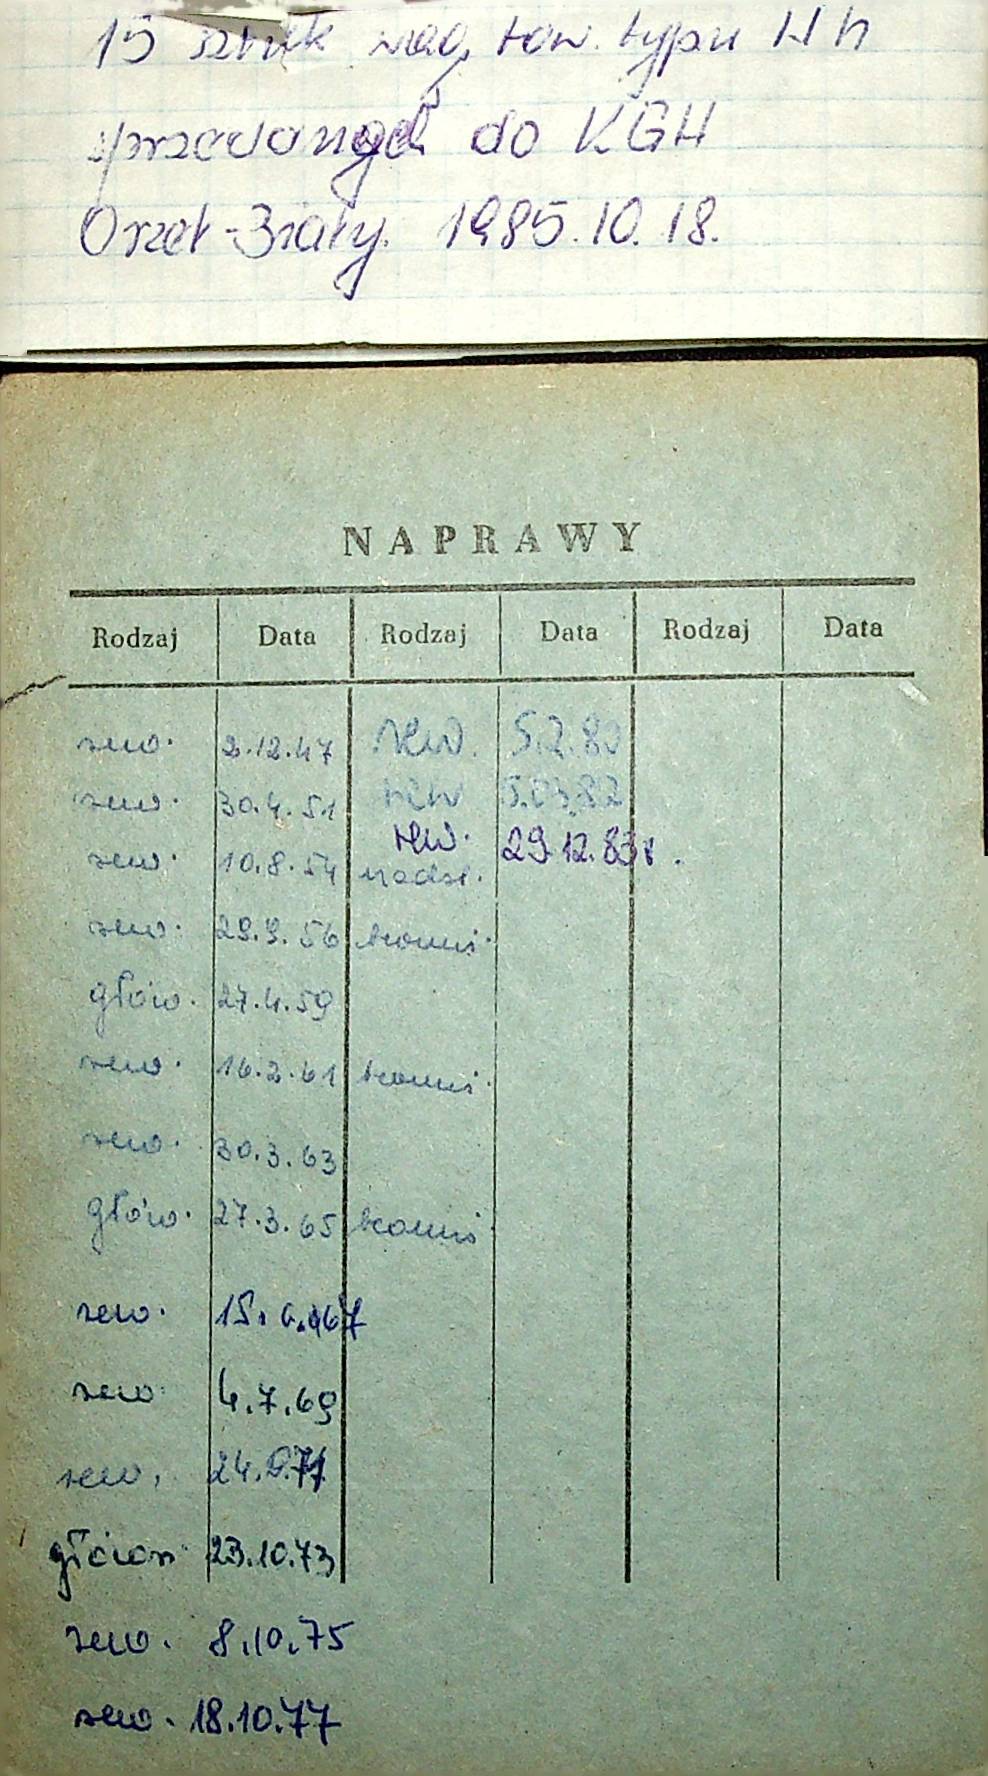 15 sztuk wag. tow. typu Hh
sprzedanych do KGH
Orzeł-Biały. 1985.10.18.
NAPRAWY
Rodzaj Data Rodzaj Data Rodzaj Data
rew. 2.12.47 rew. 5.2.80
rew. 30.4.51 rew 5.03.82
rew. 29.12.83r.
rew. 10.8.54 nadsł.
rew. 29.9.56 komis.
głów. 27.4.59
rew. 16.2.61 komis.
rew. 30.3.63
głów. 27.3.65 komis.
rew. 15.6.67
rew. 4.7.69
rew. 24.9.71
główn. 23.10.73
rew. 8.10.75
rew. 18.10.77